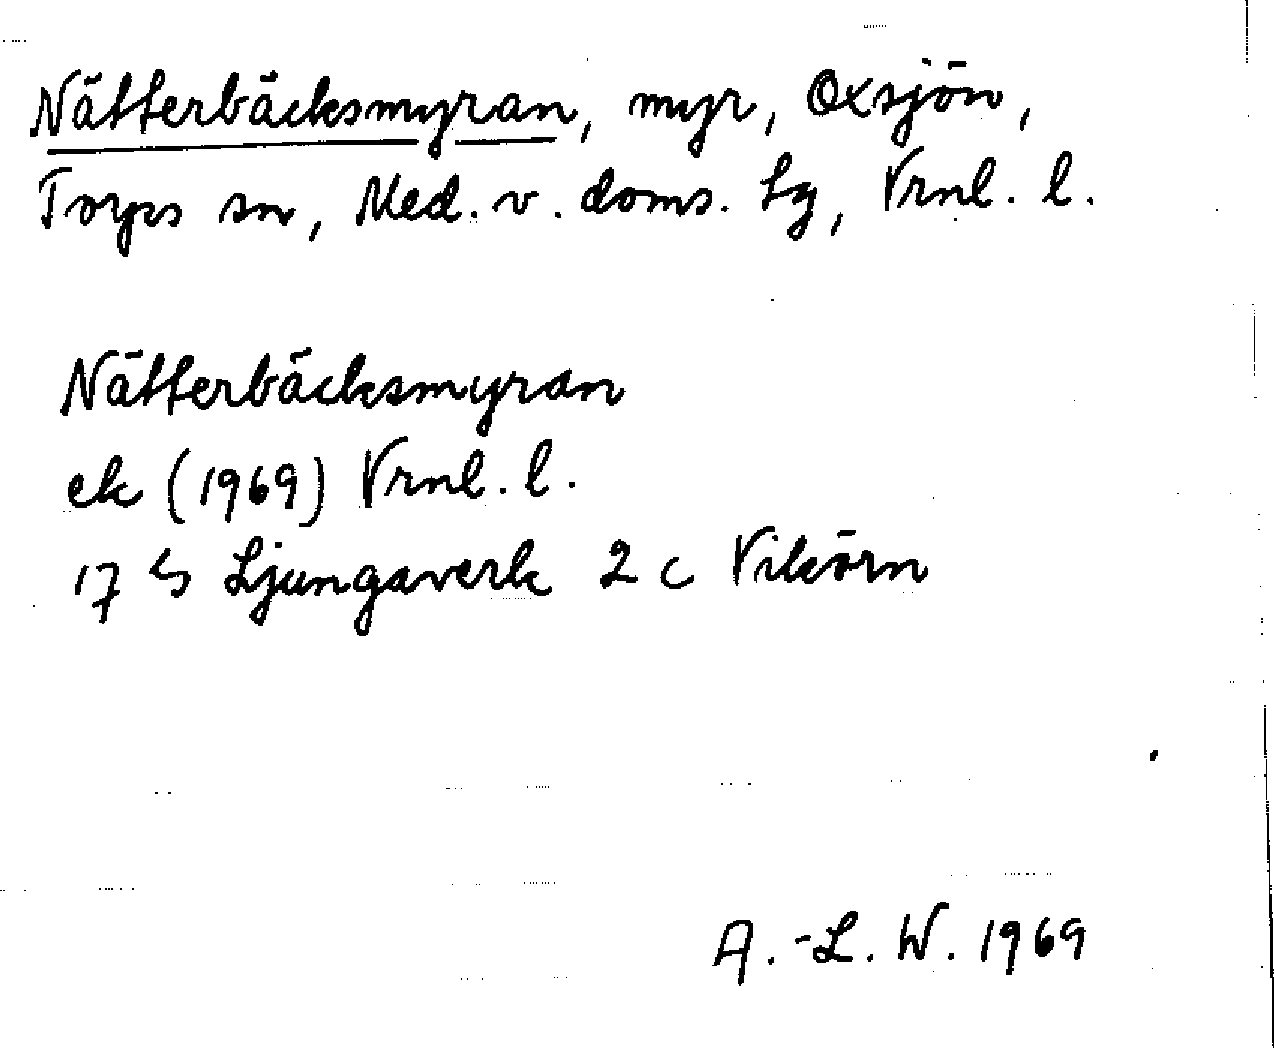 Nätterbäcksmyran, myr, Oxsjön,
Torps sn, Med. v. doms. Lg, Vrnl. l.
Nätterbäcksmyran
ek (1969) Vrnl. l.
17 G Ljungaverk 2 c Vikörn
A.-L. W. 1969